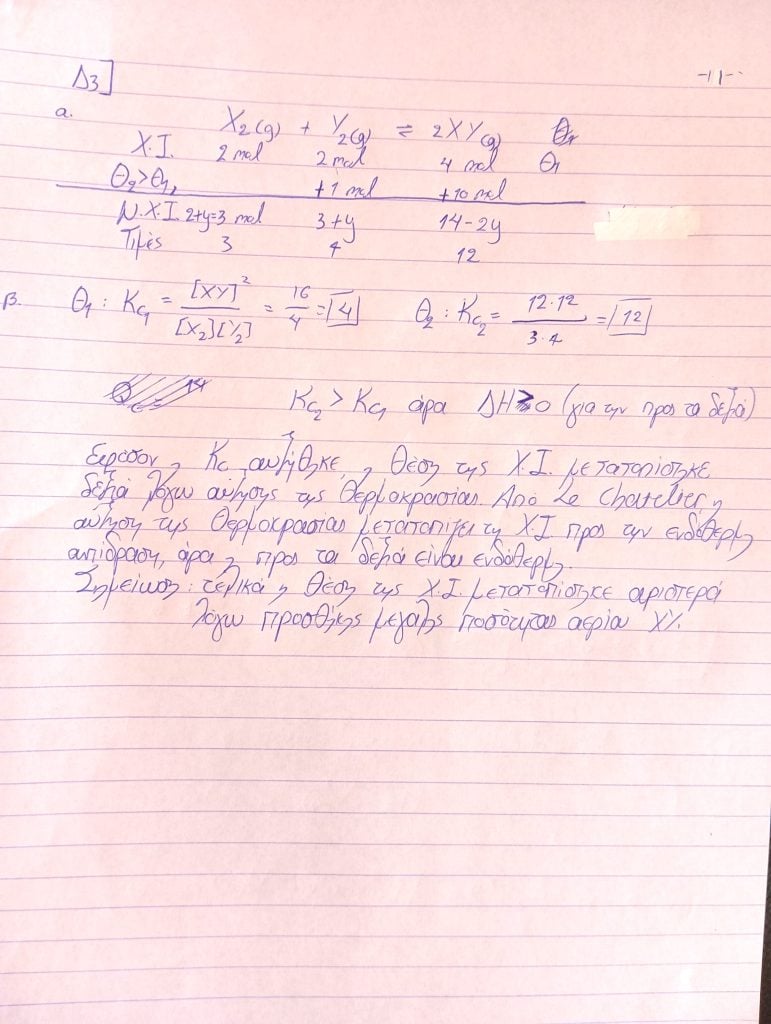 Δ3]
-11-
α. X2(g) + Y2(g) ⇌ 2XY(g)
Χ.Ι. 2 mol 2 mol 4 mol Θ1
Θ2>Θ1, +1 mol +10 mol
Ν.Χ.Ι. 2+y=3 mol 3+y 14-2y
Τιμές 3 4 12
β. Θ1 : Kc1 = [XY]² / [X2][Y2] = 16/4 = 4 Θ2 : Kc2 = 12·12 / 3·4 = 12
Kc2 > Kc1 άρα ΔΗ>0 (για την προς τα δεξιά)
Εφόσον η Kc αυξήθηκε, η θέση της Χ.Ι. μετατοπίστηκε
δεξιά λόγω αύξησης της θερμοκρασίας. Από Le Chatelier η
αύξηση της θερμοκρασίας μετατοπίζει τη Χ.Ι. προς την ενδόθερμη
αντίδραση, άρα η προς τα δεξιά είναι ενδόθερμη.
Σημείωση: τελικά η θέση της Χ.Ι. μετατοπίστηκε αριστερά
λόγω προσθήκης μεγάλης ποσότητας αερίου XY.